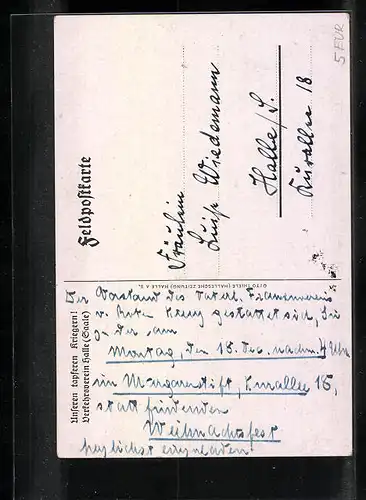 5 EUR
Feldpostkarte
Fräulein
Luise Wiedemann
Halle/S.
18
OTTO THIELE (HALLESCHE ZEITUNG) HALLE A. S.
Unseren tapferen Kriegern!
Verkehrsverein Halle (Saale)
Der Vorstand des Vaterl. Frauenvereins
v. Roten Kreuz gestattet sich, Sie
zu der am
Montag, den 18. Dez. nachm. 4 Uhr
im 18,
stattfindenden
Weihnachtsfest
herzlichst einzuladen.